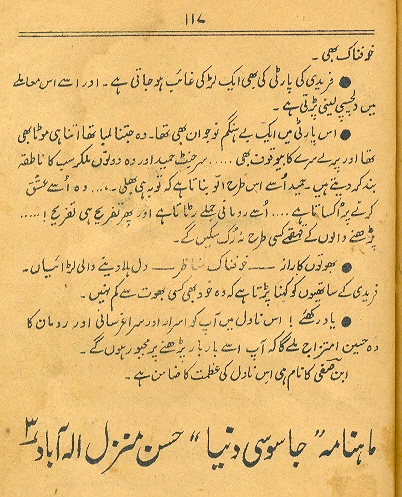 ۱۱۷
خوفناک بھی۔
● فریدی کی پارٹی کی بھی ایک لڑکی غائب ہو جاتی ہے۔ اور اسے اس معاملے
میں دلچسپی لینی پڑتی ہے۔
● اس پارٹی میں ایک بے ہنگم نوجوان بھی تھا۔ وہ جتنا لمبا تھا اتنا ہی موٹا بھی
تھا اور پرلے سرے کا بیوقوف بھی ..... سرجنٹ حمید اور وہ دونوں ملکر سب کا ناطقہ
بند کر دیتے ہیں۔ حمید اُسے اس طرح اُلّو بناتا ہے کہ توبہ ہی بھلی۔.... وہ اُسے عشق
کرنے پر اُکساتا ہے .... اُسے رومانی جملے رٹاتا ہے اور پھر تفریح ہی تفریح! .....
پڑھنے والوں کے قہقہے کسی طرح نہ رُک سکیں گے۔
● بھوتوں کا راز —— خوفناک مناظر —— دل ہلا دینے والی لڑائیاں۔
فریدی کے ساتھیوں کو کہنا پڑتا ہے کہ وہ خود بھی کسی بھوت سے کم نہیں۔
● یاد رکھئے! اس ناول میں آپ کو اسرار اور سراغرسانی اور رومان کا
وہ حسین امتزاج ملے گا کہ آپ اسے بار بار پڑھنے پر مجبور ہوں گے۔
ابن صفی کا نام ہی اس ناول کی عظمت کا ضامن ہے۔
ماہنامہ "جاسوسی دنیا" حسن منزل الہ آباد ۳